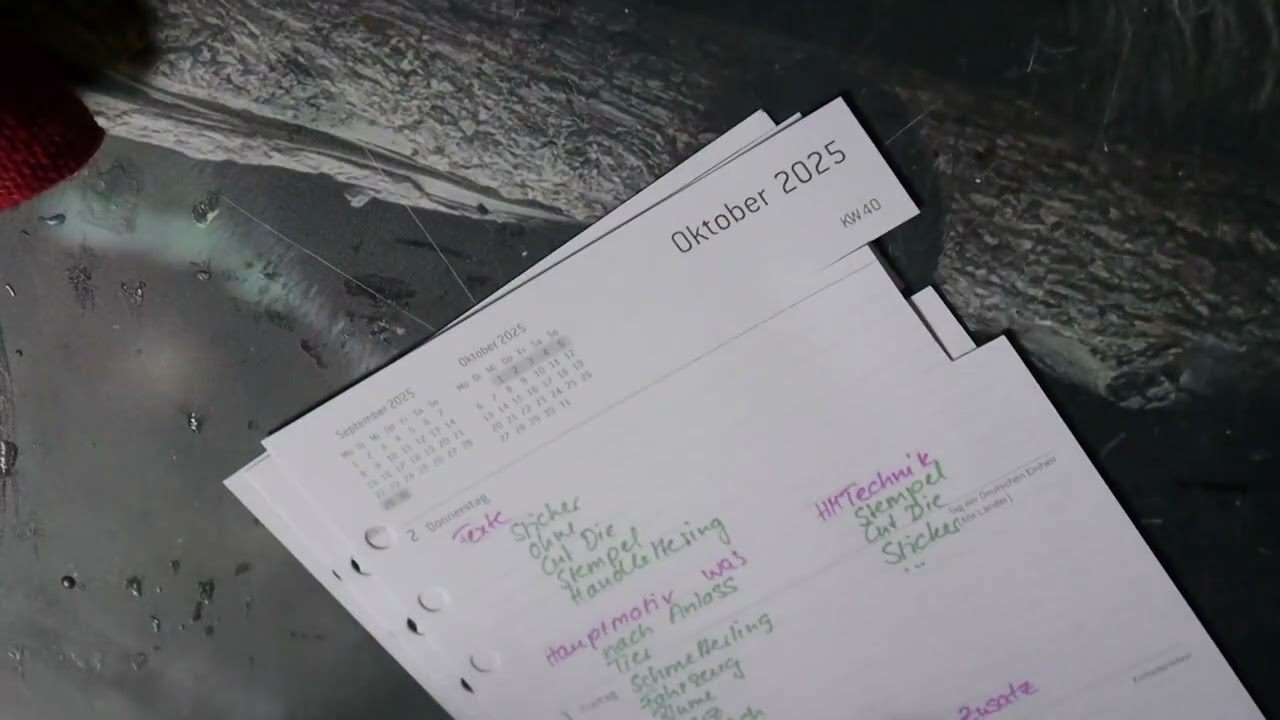 Oktober 2025
KW 40
September 2025
Mo Di Mi Do Fr Sa So
1 2 3 4 5 6 7
8 9 10 11 12 13 14
15 16 17 18 19 20 21
22 23 24 25 26 27 28
29 30
Oktober 2025
Mo Di Mi Do Fr Sa So
1 2 3 4 5
6 7 8 9 10 11 12
13 14 15 16 17 18 19
20 21 22 23 24 25 26
27 28 29 30 31
2 Donnerstag
Texte Sticker
ohne
Cut Die
Stempel
Handlettering
HM Technik
Stempel
Cut Die
Sticker
...
Tag der Deutschen Einheit
(Alle Länder)
Hauptmotiv was
nach Anlass
Tier
Schmetterling
Fahrzeug
Blume
3 Freitag
Zusatz
Erntedankfest